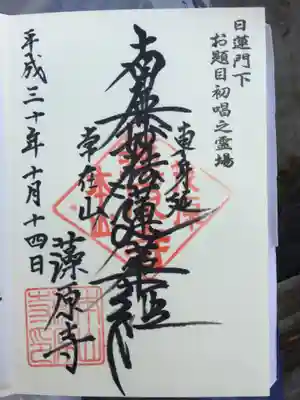 日蓮門下
お題目初唱之霊場
東身延
南無妙法蓮華経
常在山
藻原寺
平成三十年十月十四日